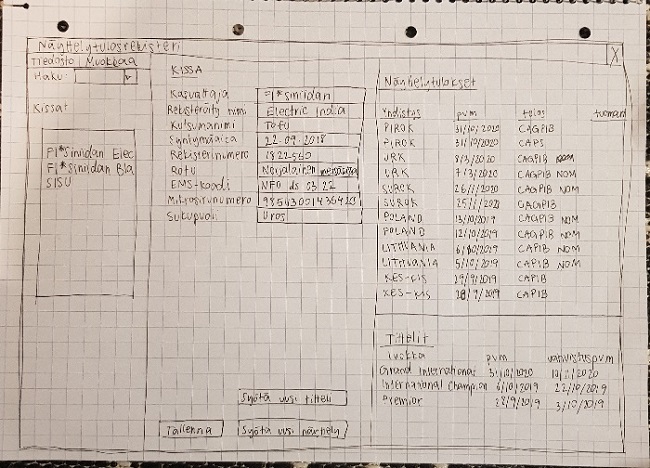 Näyttelytulosrekisteri
X
Tiedosto Muokkaa
Haku:
Kissat
FI*Siniidan Elec
FI*Siniidan Bla
SISU
KISSA
Kasvattaja FI*Siniidan
Rekisteröity nimi Electric India
Kutsumanimi Tofu
Syntymäaika 22.09.2018
Rekisterinumero
Rotu Norjalainen metsäkissa
EMS-koodi NFO ds 03 22
Mikrosirunumero
Sukupuoli Uros
Syötä uusi titteli
Tallenna
Syötä uusi näyttely
Näyttelytulokset
Yhdistys pvm tulos tuomari
PIROK 31/10/2020 CAGPIB
PIROK 31/10/2020 CAPS
URK 8/3/2020 CAGPIB NOM
URK 7/3/2020 CAGPIB NOM
SUROK 26/1/2020 CAGPIB NOM
SUROK 25/1/2020 CAGPIB
POLAND 13/10/2019 CAGPIB NOM
POLAND 12/10/2019 CAGPIB NOM
LITHVANIA 6/10/2019 CAPIB NOM
LITHVANIA 5/10/2019 CAPIB NOM
KES-KIS 29/9/2019 CAPIB
KES-KIS 28/9/2019 CAPIB
Tittelit
luokka pvm vahvistuspvm
Grand International 31/10/2020
International Champion 6/10/2019 22/10/2019
Premior 28/9/2019 3/10/2019